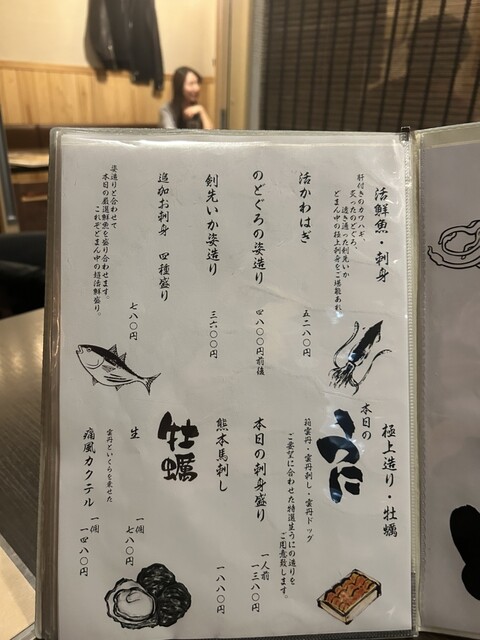 活鮮魚・刺身
肝付きのカワハギ、
炙ったのどぐろ、
透き通った剣先いか
どまん中の極上刺身をご堪能あれ
活かわはぎ
五二八〇円
のどぐろの姿造り
四八〇〇円前後
剣先いか姿造り
三六〇〇円
追加お刺身 四種盛り
七八〇円
姿造りと合わせて
本日の厳選鮮魚を盛り合わせます。
これぞどまん中の超活鮮盛り。
極上造り・牡蠣
本日の
うに
箱雲丹・雲丹刺し・雲丹ドッグ
ご要望に合わせた特選生うにの造りを
ご用意致します。
本日の刺身盛り
一人前
一三八〇円
熊本馬刺し
一八八〇円
牡蠣
生
一個
七八〇円
雲丹といくらを乗せた
痛風カクテル
一個
一四八〇円